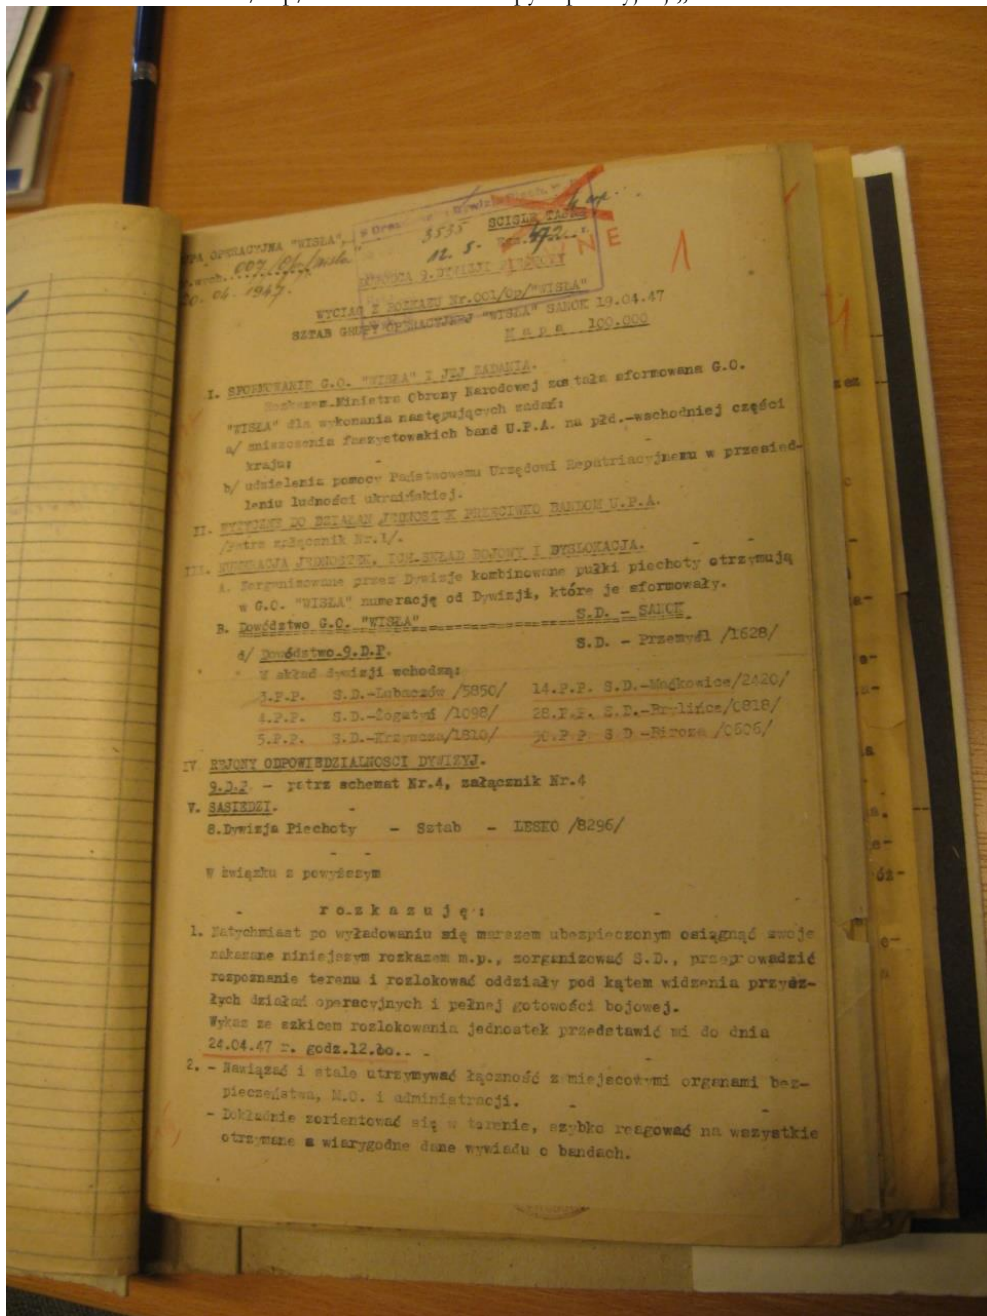 OPERACYJNA "WISŁA"
wych. 007/Op/Wisła"
04. 1947.
3535
ŚCISLE
12. 5.
DOWÓDCA 9. DYWIZJI PIECHOTY
1
WYCIĄG Z ROZKAZU Nr.001/Op/"WISŁA"
SZTAB GRUPY OPERACYJNEJ "WISŁA" SANOK 19.04.47
Mapa 100.000
I. SFORMOWANIE G.O. "WISŁA" I JEJ ZADANIA.
Rozkazem Ministra Obrony Narodowej została sformowana G.O.
"WISŁA" dla wykonania następujących zadań:
a/ zniszczenia faszystowskich band U.P.A. na płd.-wschodniej części
kraju;
b/ udzielenia pomocy Państwowemu Urzędowi Repatriacyjnemu w przesied-
leniu ludności ukraińskiej.
II. WYTYCZNE DO DZIAŁAŃ JEDNOSTEK PRZECIWKO BANDOM U.P.A.
/Patrz załącznik Nr.1/.
III. NUMERACJA JEDNOSTEK, ICH SKŁAD BOJOWY I DYSLOKACJA.
A. Zorganizowane przez Dywizje kombinowane pułki piechoty otrzymują
w G.O. "WISŁA" numerację od Dywizji, które je sformowały.
B. Dowództwo G.O. "WISŁA" S.D. - SANOK
d/ Dowództwo 9.D.P. S.D. - Przemyśl /1628/
W skład dywizji wchodzą:
3.P.P. S.D.-Lubaczów /5850/ 14.P.P. S.D.-Maćkowice/2420/
4.P.P. S.D.-Żogatyń /1098/ 28.P.P. S.D.-Brylińce/0818/
5.P.P. S.D.-Krzywcza/1810/ 30.P.P. S.D.-Bircza /0606/
IV REJONY ODPOWIEDZIALNOSCI DYWIZYJ.
9.D.P. - patrz schemat Nr.4, załącznik Nr.4
V. SASIEDZI.
8.Dywizja Piechoty - Sztab - LESKO /8296/
W związku z powyższym
rozkazuję:
1. Natychmiast po wyładowaniu się marszem ubezpieczonym osiągnąć swoje
nakazane niniejszym rozkazem m.p., zorganizować S.D., przeprowadzić
rozpoznanie terenu i rozlokować oddziały pod kątem widzenia przysz-
łych działań operacyjnych i pełnej gotowości bojowej.
Wykaz ze szkicem rozlokowania jednostek przedstawić mi do dnia
24.04.47 r. godz.12.oo.
2. - Nawiązać i stale utrzymywać łączność z miejscowymi organami bez-
pieczeństwa, M.O. i administracji.
- Dokładnie zorientować się w terenie, szybko reagować na wszystkie
otrzymane a wiarygodne dane wywiadu o bandach.